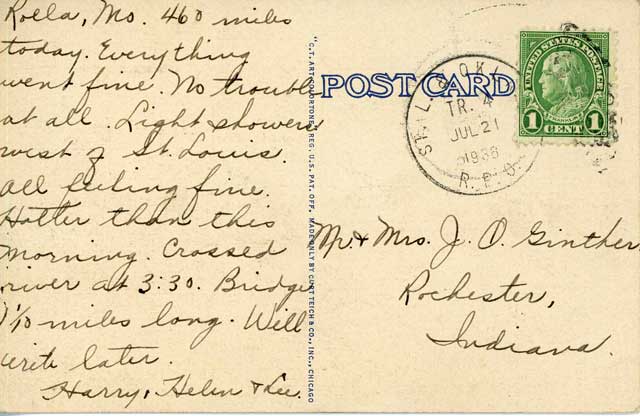 Rolla, Mo. 460 miles
today. Everything
went fine. No trouble
at all. Light showers
west of St. Louis.
All feeling fine.
Hotter than this
morning. Crossed
river at 3:30. Bridge
1/10 miles long. Will
write later.
Harry, Helen & Lee.
"C.T. ART-COLORTONE" REG. U.S. PAT. OFF. MADE ONLY BY CURT TEICH & CO., INC., CHICAGO
POST CARD
ST. L. & OKL
TR. 4
JUL 21
1938
R.P.O.
UNITED STATES POSTAGE
FRANKLIN
1 CENT 1
Mr. & Mrs. J. O. Ginther
Rochester,
Indiana.